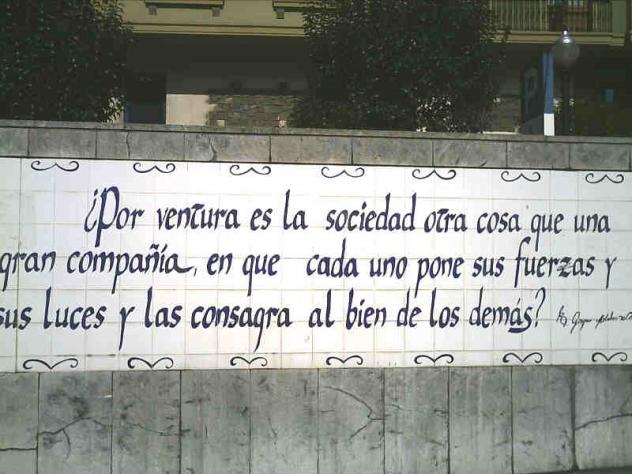 ¿Por ventura es la sociedad otra cosa que una
gran compañía, en que cada uno pone sus fuerzas y
sus luces y las consagra al bien de los demás?
P